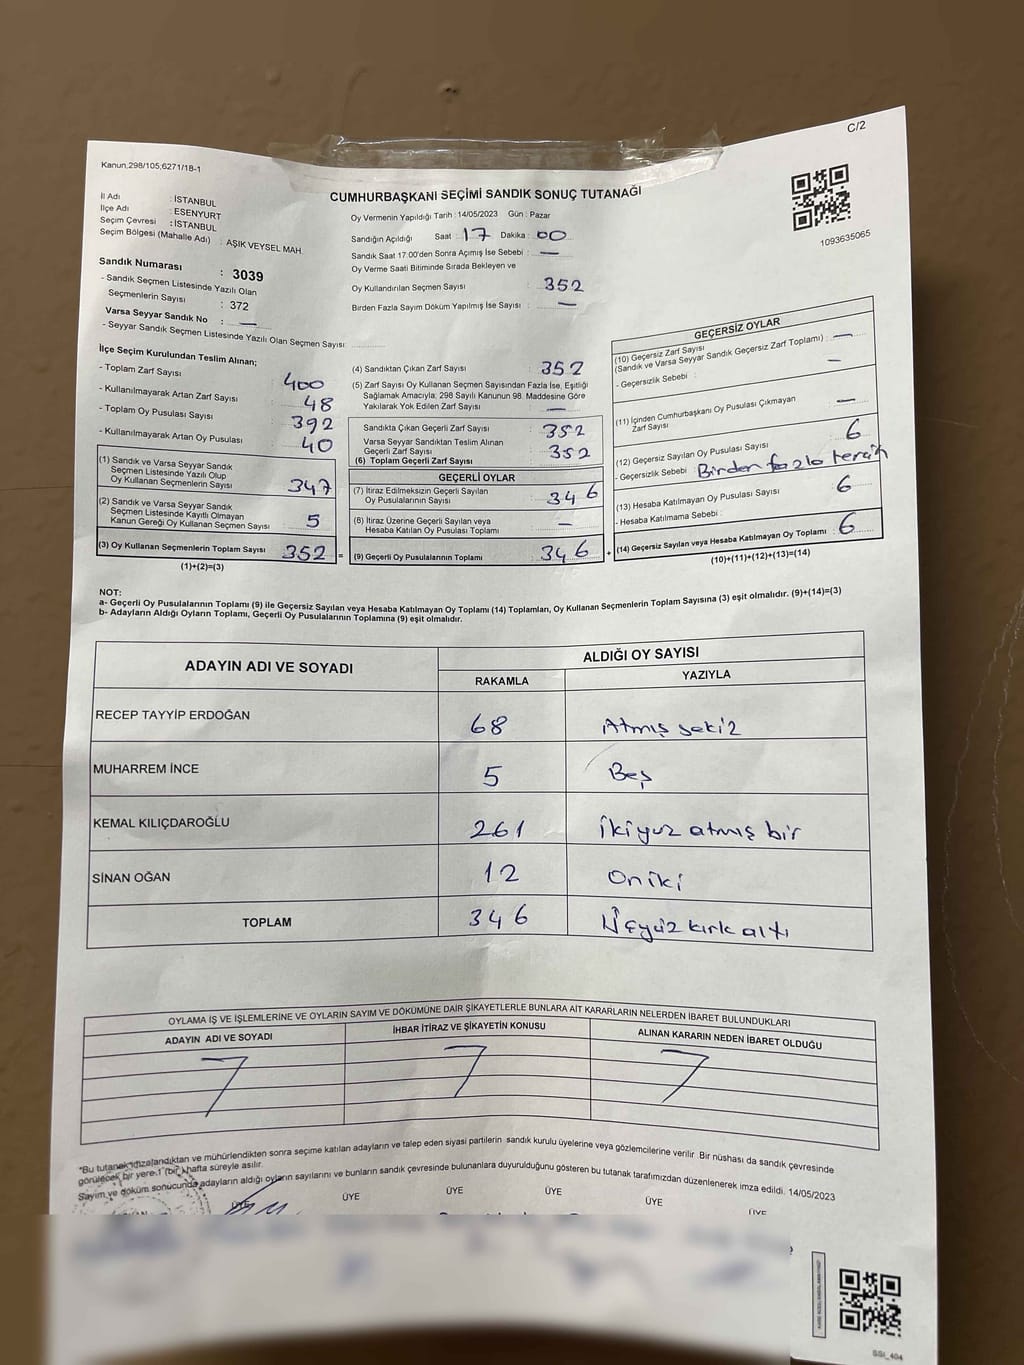 C/2
Kanun,298/105,6271/18-1
CUMHURBAŞKANİ SEÇİMİ SANDIK SONUÇ TUTANAĞI
1093635065
İl Adı : İSTANBUL
İlçe Adı : ESENYURT
Seçim Çevresi : İSTANBUL
Seçim Bölgesi (Mahalle Adı) : AŞIK VEYSEL MAH.
Sandık Numarası : 3039
- Sandık Seçmen Listesinde Yazılı Olan
Seçmenlerin Sayısı : 372
Varsa Seyyar Sandık No : —
- Seyyar Sandık Seçmen Listesinde Yazılı Olan Seçmen Sayısı:
Oy Vermenin Yapıldığı Tarih : 14/05/2023 Gün : Pazar
Sandığın Açıldığı Saat : 17 Dakika : 00
Sandık Saat 17.00'den Sonra Açımış İse Sebebi : —
Oy Verme Saati Bitiminde Sırada Bekleyen ve
Oy Kullandırılan Seçmen Sayısı : 352
Birden Fazla Sayım Döküm Yapılmış İse Sayısı : —
İlçe Seçim Kurulundan Teslim Alınan;
- Toplam Zarf Sayısı : 400
- Kullanılmayarak Artan Zarf Sayısı : 48
- Toplam Oy Pusulası Sayısı : 392
- Kullanılmayarak Artan Oy Pusulası : 40
(1) Sandık ve Varsa Seyyar Sandık
Seçmen Listesinde Yazılı Olup
Oy Kullanan Seçmenlerin Sayısı : 347
(2) Sandık ve Varsa Seyyar Sandık
Seçmen Listesinde Kayıtlı Olmayan
Kanun Gereği Oy Kullanan Seçmen Sayısı : 5
(3) Oy Kullanan Seçmenlerin Toplam Sayısı : 352 =
(1)+(2)=(3)
(4) Sandıktan Çıkan Zarf Sayısı : 352
(5) Zarf Sayısı Oy Kullanan Seçmen Sayısından Fazla İse, Eşitliği
Sağlamak Amacıyla; 298 Sayılı Kanunun 98. Maddesine Göre
Yakılarak Yok Edilen Zarf Sayısı : —
Sandıkta Çıkan Geçerli Zarf Sayısı : 352
Varsa Seyyar Sandıktan Teslim Alınan
Geçerli Zarf Sayısı : 352
(6) Toplam Geçerli Zarf Sayısı
GEÇERLİ OYLAR
(7) İtiraz Edilmeksizin Geçerli Sayılan
Oy Pusulalarının Sayısı : 346
(8) İtiraz Üzerine Geçerli Sayılan veya
Hesaba Katılan Oy Pusulası Toplamı : —
(9) Geçerli Oy Pusulalarının Toplamı : 346 +
GEÇERSİZ OYLAR
(10) Geçersiz Zarf Sayısı
(Sandık ve Varsa Seyyar Sandık Geçersiz Zarf Toplamı) : —
- Geçersizlik Sebebi : —
(11) İçinden Cumhurbaşkanı Oy Pusulası Çıkmayan
Zarf Sayısı : —
(12) Geçersiz Sayılan Oy Pusulası Sayısı : 6
- Geçersizlik Sebebi : Birden fazla tercih
(13) Hesaba Katılmayan Oy Pusulası Sayısı : 6
- Hesaba Katılmama Sebebi :
(14) Geçersiz Sayılan veya Hesaba Katılmayan Oy Toplamı : 6
(10)+(11)+(12)+(13)=(14)
NOT:
a- Geçerli Oy Pusulalarının Toplamı (9) ile Geçersiz Sayılan veya Hesaba Katılmayan Oy Toplamı (14) Toplamları, Oy Kullanan Seçmenlerin Toplam Sayısına (3) eşit olmalıdır. (9)+(14)=(3)
b- Adayların Aldığı Oyların Toplamı, Geçerli Oy Pusulalarının Toplamına (9) eşit olmalıdır.
ADAYIN ADI VE SOYADI ALDIĞI OY SAYISI
RAKAMLA YAZIYLA
RECEP TAYYİP ERDOĞAN 68 Atmış sekiz
MUHARREM İNCE 5 Beş
KEMAL KILIÇDAROĞLU 261 ikiyüz atmış bir
SİNAN OĞAN 12 Oniki
TOPLAM 346 Üçyüz kırk altı
OYLAMA İŞ VE İŞLEMLERİNE VE OYLARIN SAYIM VE DÖKÜMÜNE DAİR ŞİKAYETLERLE BUNLARA AİT KARARLARIN NELERDEN İBARET BULUNDUKLARI
ADAYIN ADI VE SOYADI İHBAR İTİRAZ VE ŞİKAYETİN KONUSU ALINAN KARARIN NEDEN İBARET OLDUĞU
*Bu tutanak imzalandıktan ve mühürlendikten sonra seçime katılan adayların ve talep eden siyasi partilerin sandık kurulu üyelerine veya gözlemcilerine verilir. Bir nüshası da sandık çevresinde
görülecek bir yere 1 (bir) hafta süreyle asılır.
Sayım ve döküm sonucunda adayların aldığı oyların sayılarını ve bunların sandık çevresinde bulunanlara duyurulduğunu gösteren bu tutanak tarafımızdan düzenlenerek imza edildi. 14/05/2023
ÜYE ÜYE ÜYE ÜYE ÜYE ÜYE
SSI_404